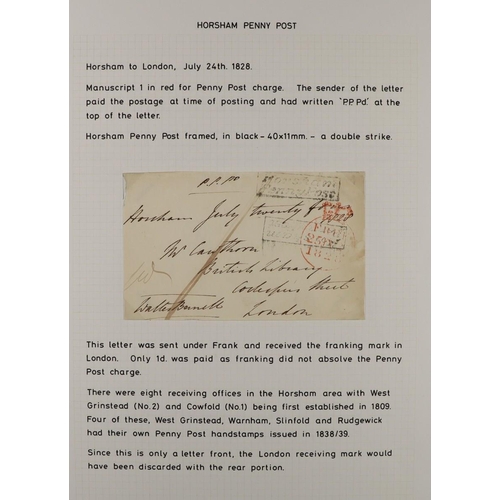 HORSHAM PENNY POST
Horsham to London, July 24th. 1828.
Manuscript 1 in red for Penny Post charge. The sender of the letter
paid the postage at time of posting and had written 'P.P.Pd.' at the
top of the letter.
Horsham Penny Post framed, in black - 40×11mm. - a double strike.
P.P. Pd
Horsham
Penny Post
Horsham July twenty
Mr Cawthorn
British Library
Cockspur Street
London
This letter was sent under Frank and received the franking mark in
London. Only 1d. was paid as franking did not absolve the Penny
Post charge.
There were eight receiving offices in the Horsham area with West
Grinstead (No.2) and Cowfold (No.1) being first established in 1809.
Four of these, West Grinstead, Warnham, Slinfold and Rudgewick
had their own Penny Post handstamps issued in 1838/39.
Since this is only a letter front, the London receiving mark would
have been discarded with the rear portion.